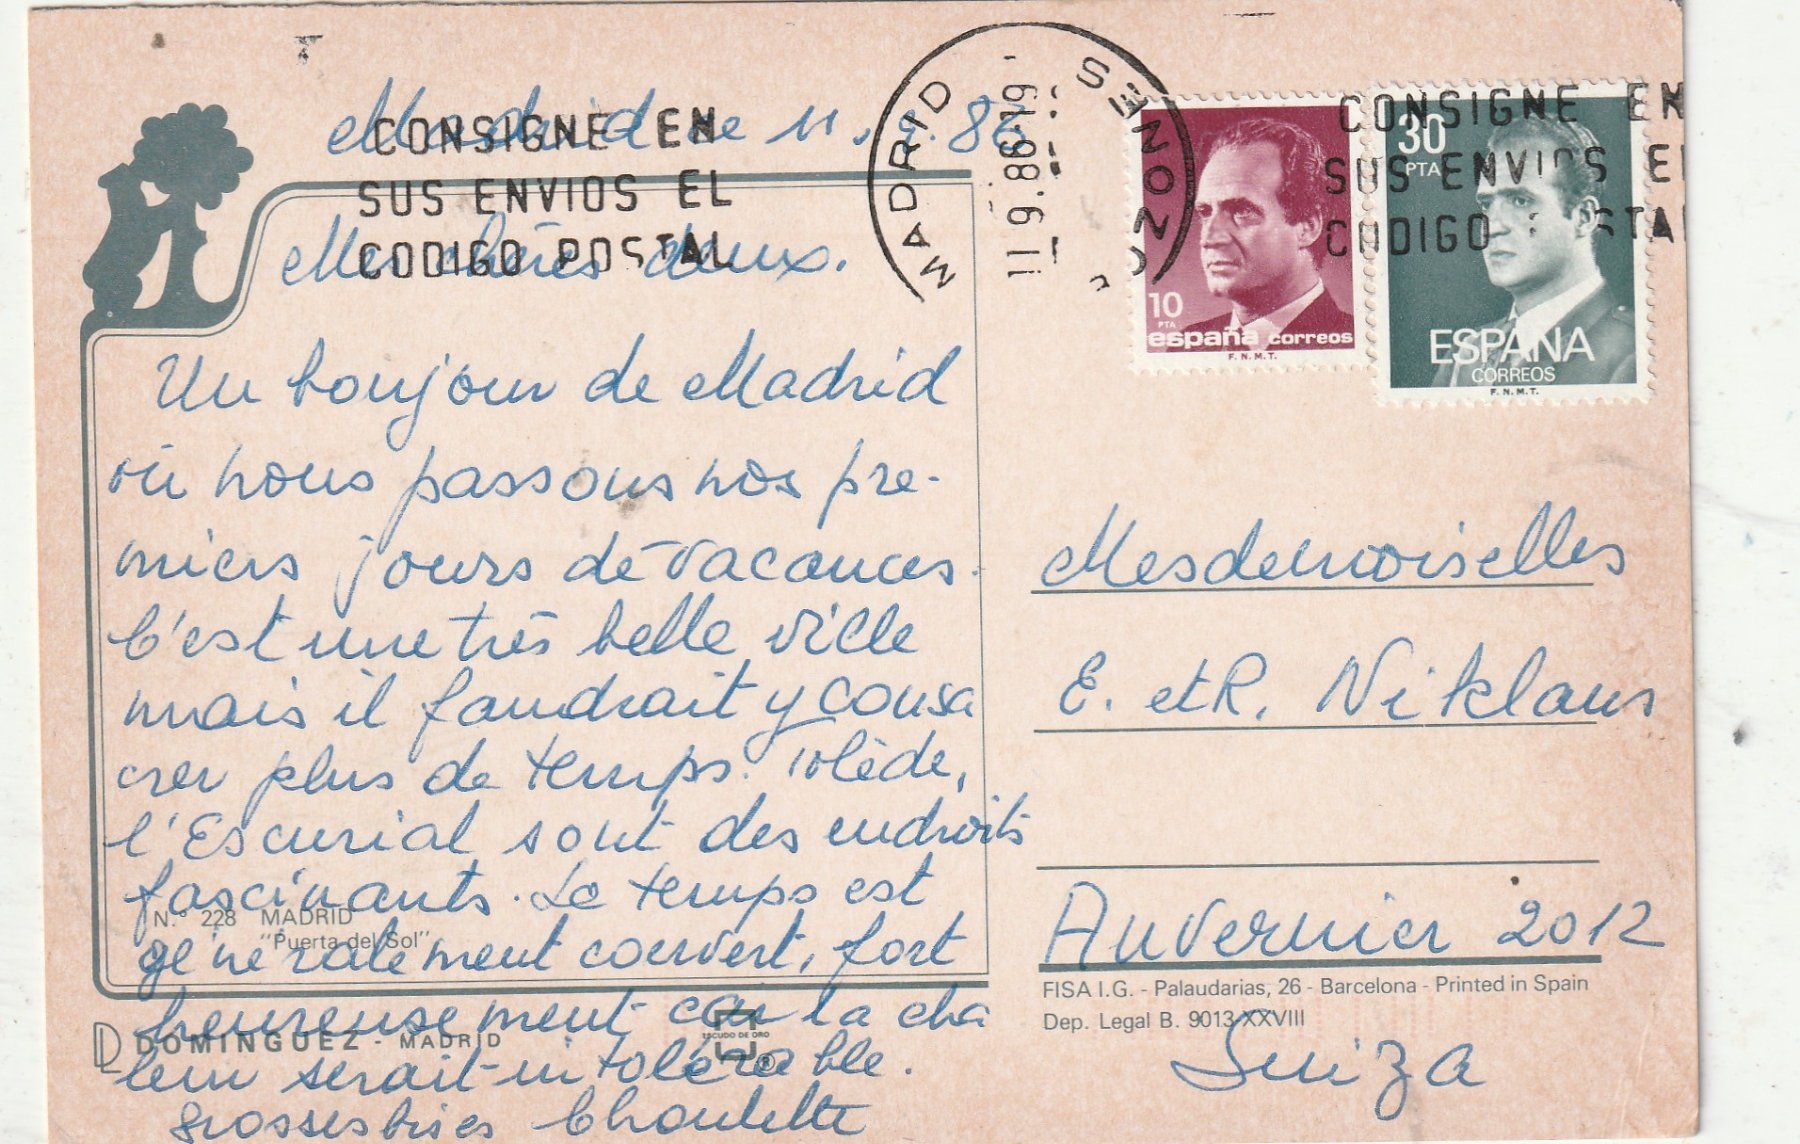 Madrid le 11.9.86
CONSIGNE EN
SUS ENVIOS EL
CODIGO POSTAL
MADRID
11 9.86.19
CONSIGNE EN
SUS ENVIOS E
CODIGO POSTAL
10
PTA
españa correos
F.N.M.T.
30
PTA
ESPAÑA
CORREOS
F.N.M.T.
Mes chères deux.
Un bonjour de Madrid
où nous passons nos pre-
miers jours de vacances.
C'est une très belle ville
mais il faudrait y consa
crer plus de temps. Tolède,
l'Escurial sont des endroits
fascinants. Le temps est
généralement couvert, fort
heureusement car la cha
leur serait intolérable.
Grosses bises Choulette
N.º 228 MADRID
"Puerta del Sol"
DOMINGUEZ - MADRID
ESCUDO DE ORO
®
Mesdemoiselles
E. et R. Niklaus
Auvernier 2012
FISA I.G. - Palaudarias, 26 - Barcelona - Printed in Spain
Dep. Legal B. 9013-XXVIII
Suiza